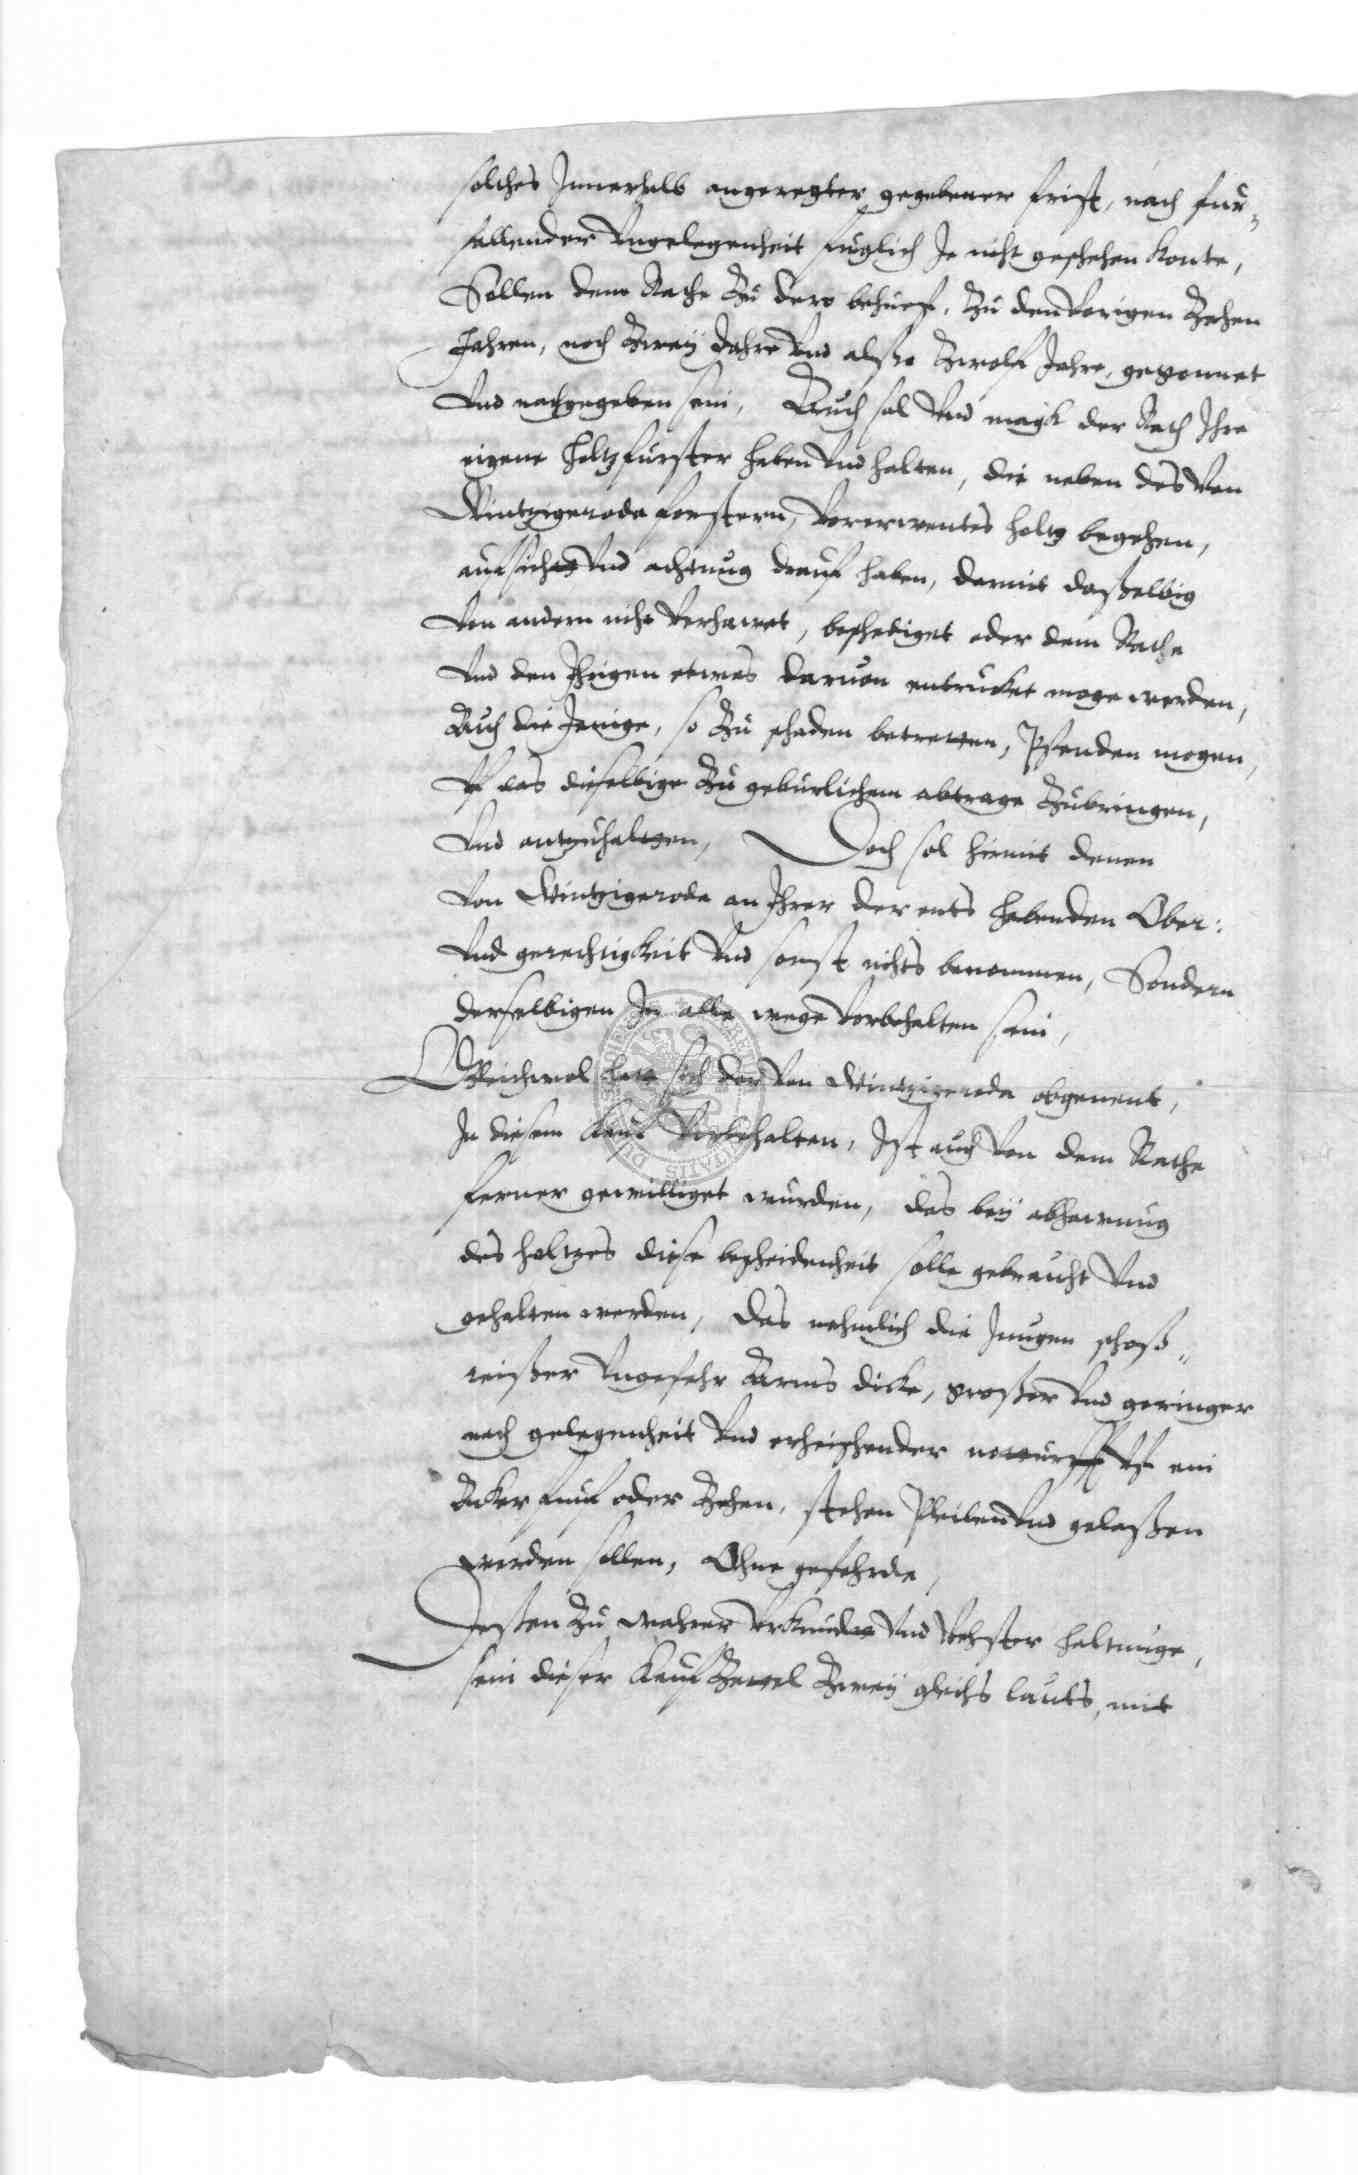 solches Innerhalb angeregter gegebener frist, nach fur„
fallender Ungelegenheit fuglich Je nicht geschehen konte,
Sollen dem Rathe Zu dero behuef, Zu den Vorigen Zehen
Jahren, noch Zweÿ Jahre Vnd alßo Zwolf Jahre, gegonnet
Vnd nachgegeben sein, Auch sol Vnd magk der Rath Ihre
eigene holtzfurster haben Vnd halten, die neben des Von
Wintzigeroda forstern, Vorerwentes holtz begehen,
aufsicht Vnd achtung drauf haben, damit daßelbig
Von andern nicht Verhawet, beschediget oder dem Rathe
Vnd den Ihrigen etwas daruon entrucket moge werden,
Auch die Jenige, so Zu schaden betretten, Pfenden mogen,
Vf das dieselbige Zu geburlichem abtrage Zubringen,
Vnd antzuhalten, Doch sol hiemit denen
Von Wintzigeroda an Ihrer der ents habenden Ober:
Vnd gerechtigkeit Vnd sonst nichts benommen, Sondern
derselbigen In alle wege Vorbehalten sein,
Gleichwol hat sich der Von Wintzigeroda obgenent,
In diesem Kauf Vorbehalten, Ist auch Von dem Rathe
ferner gewilliget wurden, das beÿ abhawung
des holtzes diese bescheidenheit solle gebraucht Vnd
gehalten werden, Das nehmlich die Jungen schoß„
reißer Ungefehr Arms dicke, großer Vnd geringer
nach gelegenheit Vnd erheischender notturfft Vf ein
Acker funf oder Zehen, stehen Pleiben Vnd gelaßen
werden sollen, Ohne gefehrde,
Deßen Zu wahrer Vrkunde Vnd Vehster haltunge,
sein dieser Kauf Zettel Zweÿ gleichs lauts, mit